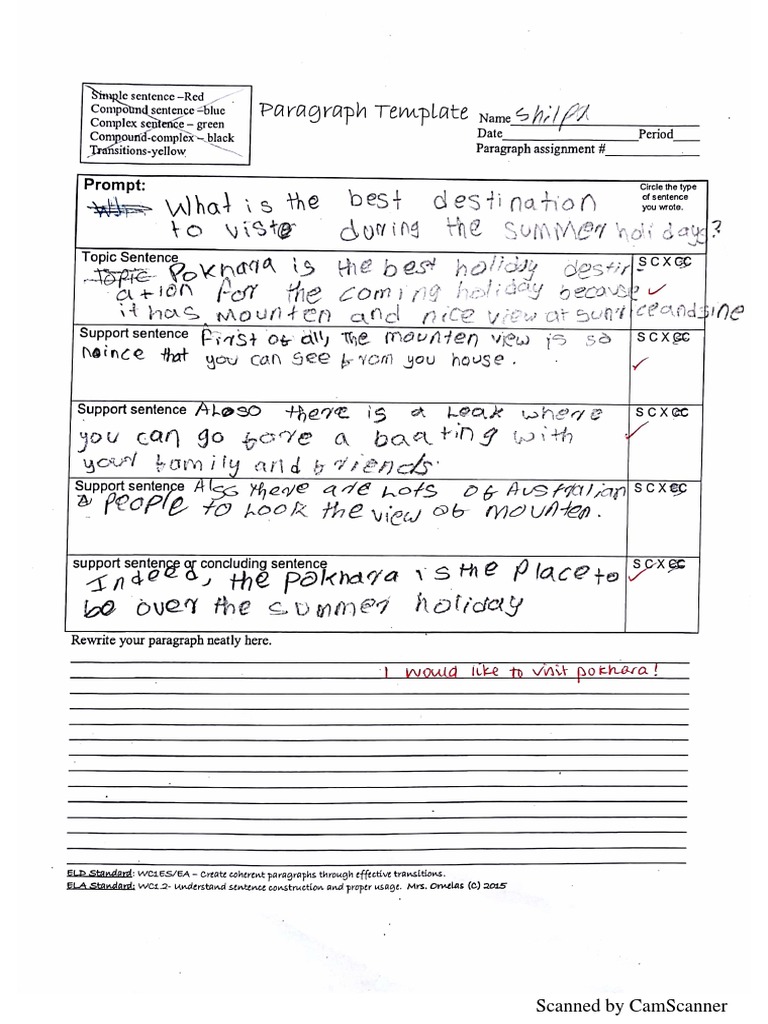 Simple sentence –Red
Compound sentence –blue
Complex sentence – green
Compound-complex – black
Transitions-yellow
Paragraph Template
Name Shilpa
Date Period
Paragraph assignment #
Prompt:
Circle the type of sentence you wrote.
What is the best destination
to viste during the summer holidays?
Topic Sentence
S C X CC
Topic Pokhara is the best holiday destin-
ation for the coming holiday because
it has mounten and nice view at sunriceandsine
Support sentence First of all, the mounten view is so
S C X CC
noince that you can see from you house.
Support sentence Aloso there is a Leak where
S C X CC
you can go fore a baating with
your family and friends.
Support sentence Also there are Lots of Australian
S C X CC
People to Look the view of mounten.
support sentence or concluding sentence
S C X CC
Indeed, the pokhara is the Place to
be over the summer holiday
Rewrite your paragraph neatly here.
I would like to visit pokhara!
ELD Standard: WC1ES/EA – Create coherent paragraphs through effective transitions.
ELA Standard: WC1.2- Understand sentence construction and proper usage. Mrs. Ornelas (C) 2015
Scanned by CamScanner